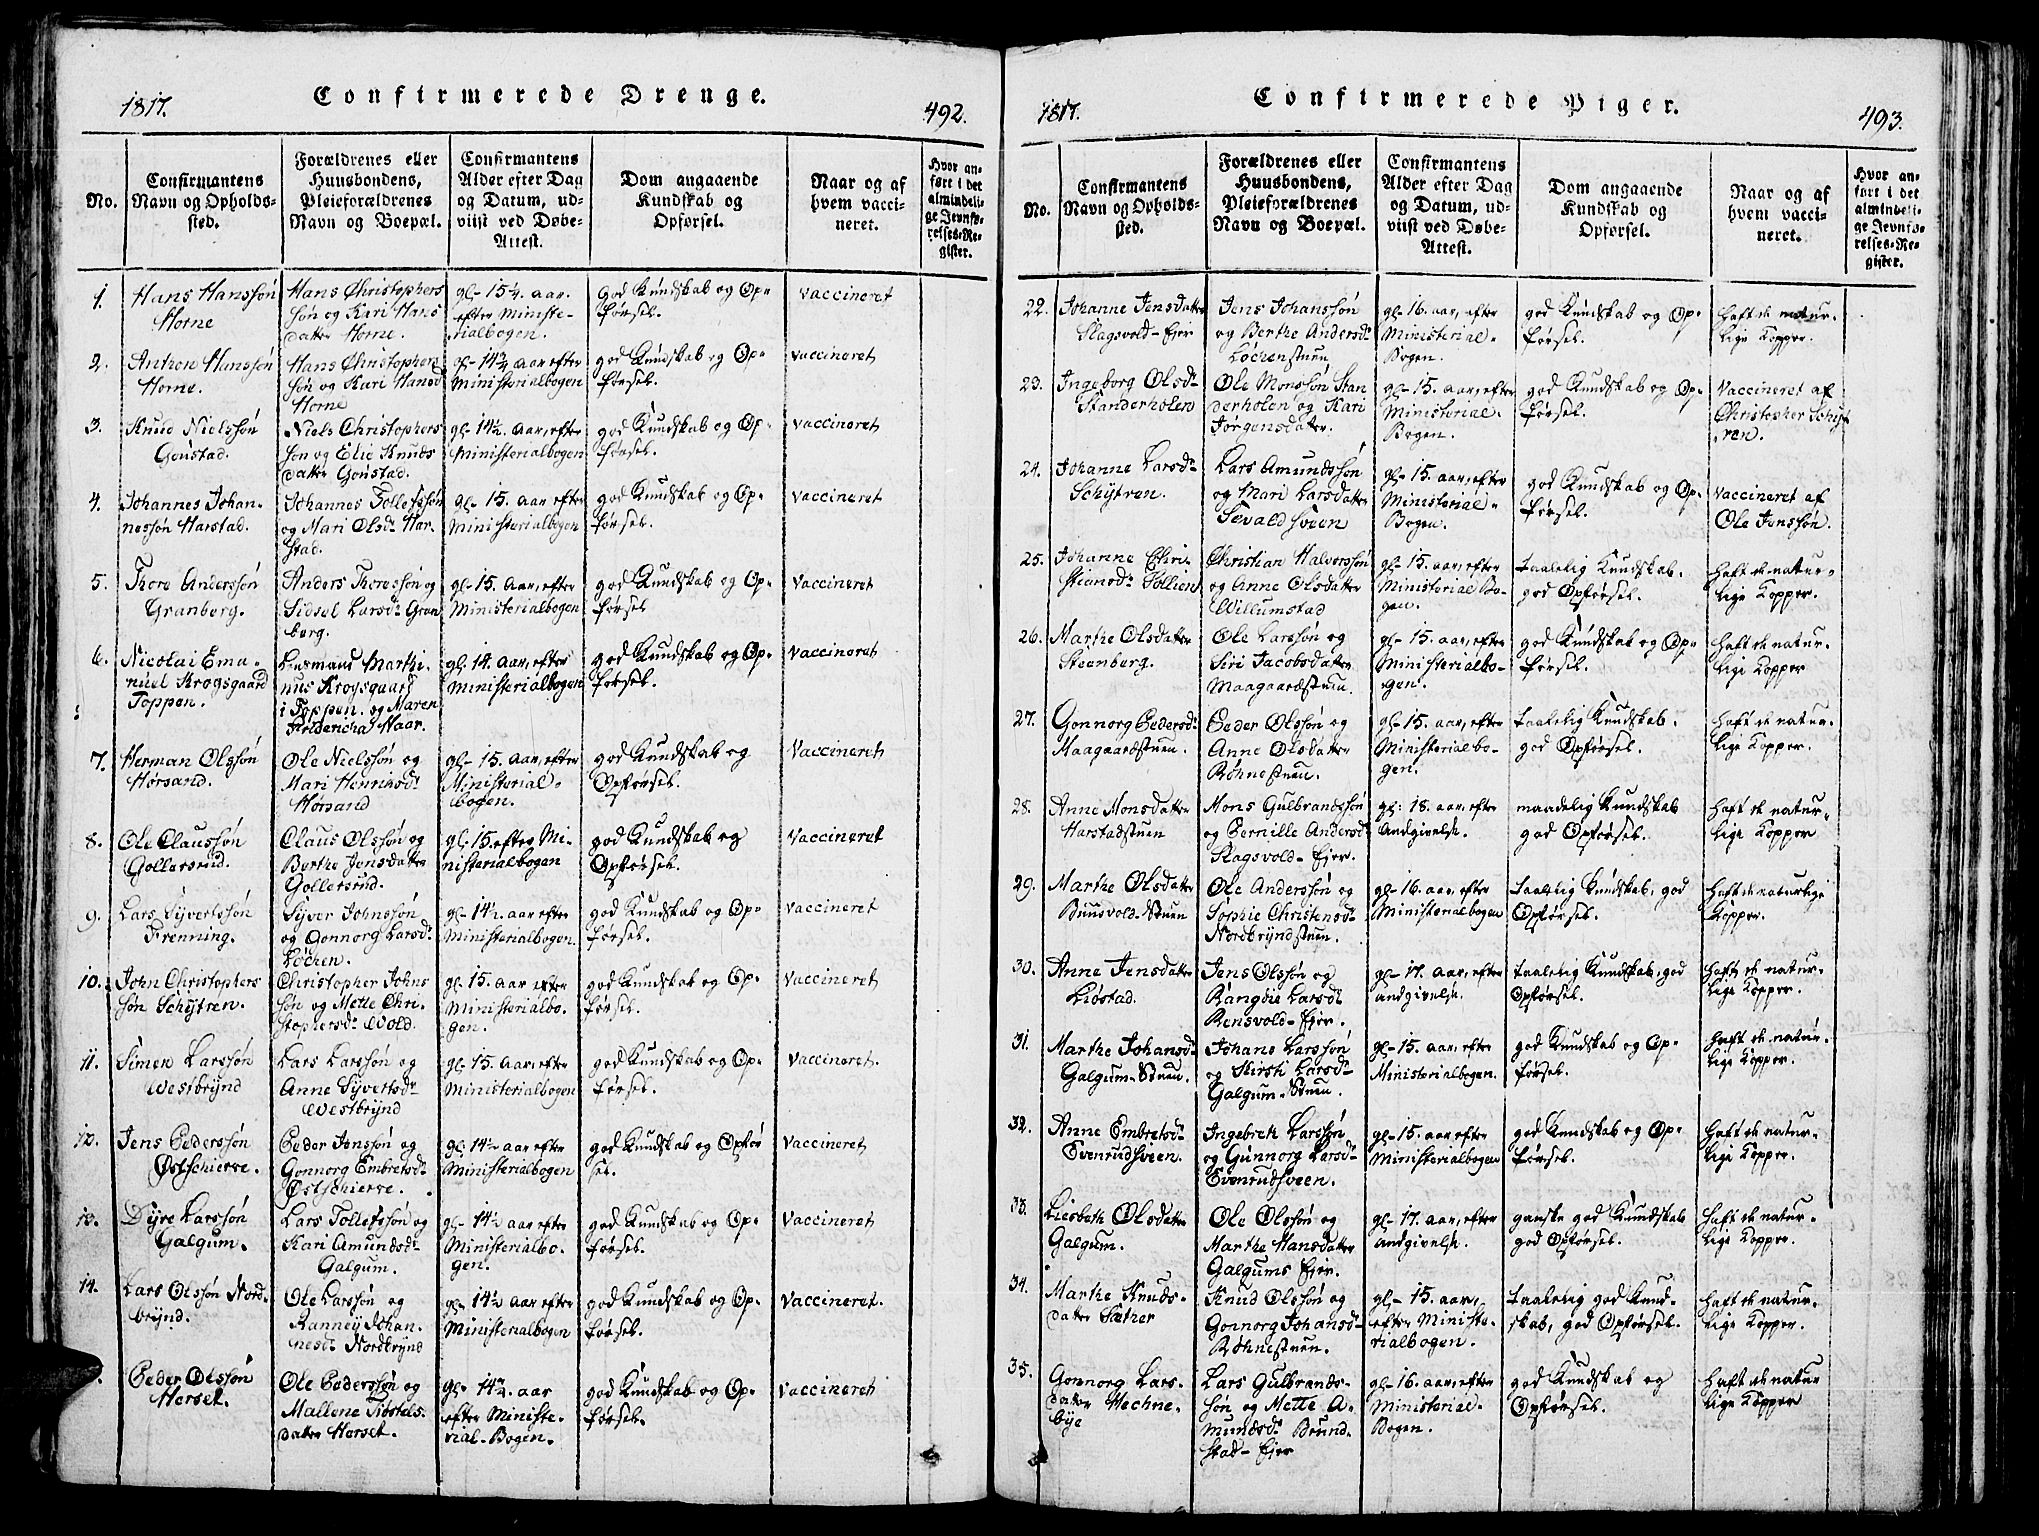 1817.
Confirmerede Drenge.
492.
No.
Confirmantens
Navn og Opholds-
sted.
Forældrenes eller
Huusbondens,
Pleieforældrenes
Navn og Boepæl.
Confirmantens
Alder efter Dag
og Datum, ud-
viist ved Døbe-
Attest.
Dom angaaende
Kundskab og
Opførsel.
Naar og af
hvem vacci-
neret.
Hvor an-
ført i det
almindeli-
ge Jevnfø-
relses-Re-
gister.
1.
Hans Hanssøn
Horne
Hans Christophers
søn og Kari Hans
datter Horne.
gl- 15¼. aar.
efter Ministe-
rialbogen.
god Kundskab og Op-
førsel.
vaccineret
2.
Anthon Hanssøn
Horne.
Hans Christophers
søn og Kari Hansd
Horne
gl- 14¾ aar efter
Ministerialbogen
god Kundskab og Op-
førsel.
vaccineret
3.
Knud Nielssøn
Gonstad.
Niels Christophers
søn og Elie Knuds
datter Gonstad.
gl- 14½. aar, efter
Ministerialbogen
god Kundskab og Op-
førsel.
vaccineret
4.
Johannes Johan-
nessøn Harstad.
Johannes Tollefssøn
og Mari Olsdr Har-
stad.
gl- 15. aar efter
Ministerialbogen
god Kundskab og Op-
førsel.
vaccineret
5.
Thore Anderssøn
Granberg.
Anders Thoressøn og
Sidsel Larsdr Gran
berg.
gl- 15. aar, efter
Ministerialbogen
god Kundskab og Op-
førsel
vaccineret
6.
Nicolai Ema-
nuel Krogsgaard
Toppen.
Lensmand Marthi-
nus Krogsgaard
i Toppen. og Maren
Fridericha Maar.
gl. 14. aar, efter
Ministerialbogen
god Kundskab og Op-
førsel.
vaccineret
7.
Herman Olssøn
Hørsand.
Ole Nielssøn og
Mari Henrichsdr
Hørsand
gl- 15. aar, efter
Ministerial-
bogen.
god Kundskab og
Opførsel.
vaccineret
8.
Ole Claussøn
Gollersrud.
Claus Olssøn og
Berthe Jensdatter
Gollersrud.
gl- 15. efter Mi-
nisterialbogen
god Kundskab og
Opførsel.
vaccineret
9.
Lars Syvertssøn
Frenning.
Syver Johnssøn
og Gonnorg Larsdr
Løchen.
gl- 14½. aar efter
Ministerialbogen.
god Kundskab og Op-
førsel.
vaccineret
10.
John Christophers
søn Schytren.
Christopher Johns
søn og Mette Chri-
stophersdr Wold.
gl- 15. aar efter
Ministerialbo-
gen.
god Kundskab og Op-
førsel.
vaccineret
11.
Simen Larssøn
Westbrynd
Lars Larssøn og
Anne Syvertsdr
Westbrynd
gl- 15. aar, efter
Ministerialbogen
god Kundskab og Op-
førsel.
vaccineret.
12.
Jens Pederssøn
Østschierre.
Peder Jenssøn og
Gonnorg Embretsdr
Østschierre.
gl- 14½ aar efter
Ministerialbogen
god Kundskab og Opfør
sel.
vaccineret
13.
Dyre Larssøn
Galgum.
Lars Tollefssøn og
Kari Amundsdr
Galgum.
gl- 14½ aar efter
Ministerialbo-
gen.
god Kundskab og Op-
førsel.
vaccineret
14.
Lars Olssøn Nord-
brynd.
Ole Larssøn og
Ranney Johan-
nesdr Nordbrynd
gl- 14½ aar efter
Ministerialbogen
god Kundskab og Op-
førsel.
vaccineret.
Peder Olssøn
Herset.
Ole Pederssøn og
Mallene Tostels-
datter Herset.
gl- 14¾. aar
efter Ministe-
rial-Bogen.
god Kundskab og Op-
førsel.
vaccineret
1817.
Confirmerede Piger.
493.
No.
Confirmantens
Navn og Opholds-
sted.
Forældrenes eller
Huusbondens,
Pleieforældrenes
Navn og Boepæl.
Confirmantens
Alder efter Dag
og Datum, ud-
viist ved Døbe-
Attest.
Dom angaaende
Kundskab og
Opførsel.
Naar og af
hvem vacci-
neret.
Hvor an-
ført i det
almindeli-
ge Jevnfø-
relses-Re-
gister.
22.
Johanne Jensdatter
Slagsvold-Ejer
Jens Johanssøn
og Berthe Andersdr
Løchenstuen
gl- 16. aar, efter
Ministerial-
Bogen.
god Kundskab og Op-
førsel.
haft de natur-
lige Kopper.
23.
Ingeborg Olsdr
Standerholen
Ole Monssøn Stan
derholen og Kari
Jørgensdatter.
gl- 15. aar, efter
Ministerial-
Bogen.
god Kundskab og Op-
førsel.
vaccineret af
Christopher Schyt
ren.
24.
Johanne Larsdr
Schytren.
Lars Amundssøn
og Mari Larsdatter
Sevaldsveen
gl- 15. aar, efter
Ministerial-
Bogen.
god Kundskab og Op-
førsel.
vaccineret af
Ole Jenssøn.
25.
Johanne Chri-
stiansdr Tollien
Christian Halverssøn
og Anne Olsdatter
Willumstad
gl- 15. aar, efter
Ministerial Bo-
gen.
taalelig Kundskab.
god Opførsel.
haft de natur-
lige Kopper.
26.
Marthe Olsdatter
Steenberg.
Ole Larssøn og
Siri Jacobsdatter
Maagaardstuen.
gl- 15. aar, efter
Ministerialbo-
gen.
god Kundskab og Op-
førsel.
haft de natur-
lige Kopper
27.
Gonnorg Pedersdr
Maagaardstuen.
Peder Olssøn og
Anne Olsdatter
Røhnestuen.
gl- 15. aar, efter
Ministerialbo-
gen.
taalelig Kundskab.
god Opførsel.
haft de natur-
lige Kopper.
28.
Anne Monsdatter
Harstadstuen
Mons Gulbrandssøn
og Pernille Andersdr
Slagsvold-Ejer.
gl: 18. aar, efter
Andgivelse.
maadelig Kundskab
god Opførsel.
haft de natur-
lige Kopper
29.
Marthe Olsdatter
Buusvold-Stuen
Ole Anderssøn og
Sophie Christensdr
Nordbryndstuen.
gl- 16. aar, efter
Ministerialbogen
taalelig Kundskab, god
Opførsel.
haft de naturlige
Kopper.
30.
Anne Jensdatter
Liøstad.
Jens Olssøn og
Rangdie Larsdr
Rensvold-Ejer.
gl- 17. aar, efter
andgivelse.
taalelig Kundskab, god
Opførsel.
hafte de natur-
lige Kopper.
31.
Marthe Johansdr
Galgum-Stuen.
Johans Larssøn
og Kirsti Larsdr
Galgum-Stuen.
gl- 15. aar, efter
Ministerialbogen.
god Kundskab og Op-
førsel.
haft de natur-
lige Kopper.
32.
Anne Embretsdr
Evenrudsveen.
Ingebreth Larssøn
og Gunnorg Larsdr
Evenrudsveen.
gl- 15. aar efter
Ministerialbogen
god Kundskab og Op-
førsel.
haft de natur-
lige Kopper.
33.
Liesbeth Olsdatter
Galgum.
Ole Olssøn og
Marthe Hansdatter
Galgums Ejer.
gl- 17. aar, efter
andgivelse.
ganske god Kundskab
god Opførsel.
haft de natur-
lige Kopper.
34.
Marthe Knuds-
datter Sæther
Knud Olssøn og
Gonnorg Johansdr
Røhnestuen.
gl- 15. aar,
efter Ministe-
rialbogen.
taalelig god Kund-
skab, god Opførsel.
haft de natur-
lige Kopper.
35.
Gonnorg Lars-
datter Hechne-
bye
Lars Gulbrands-
søn og Mette A-
mundsdr Brund-
stad-Ejer
gl- 16. aar, efter
Ministerial-
Bogen.
god Kundskab og
Opførsel.
haft de natur
lige Kopper